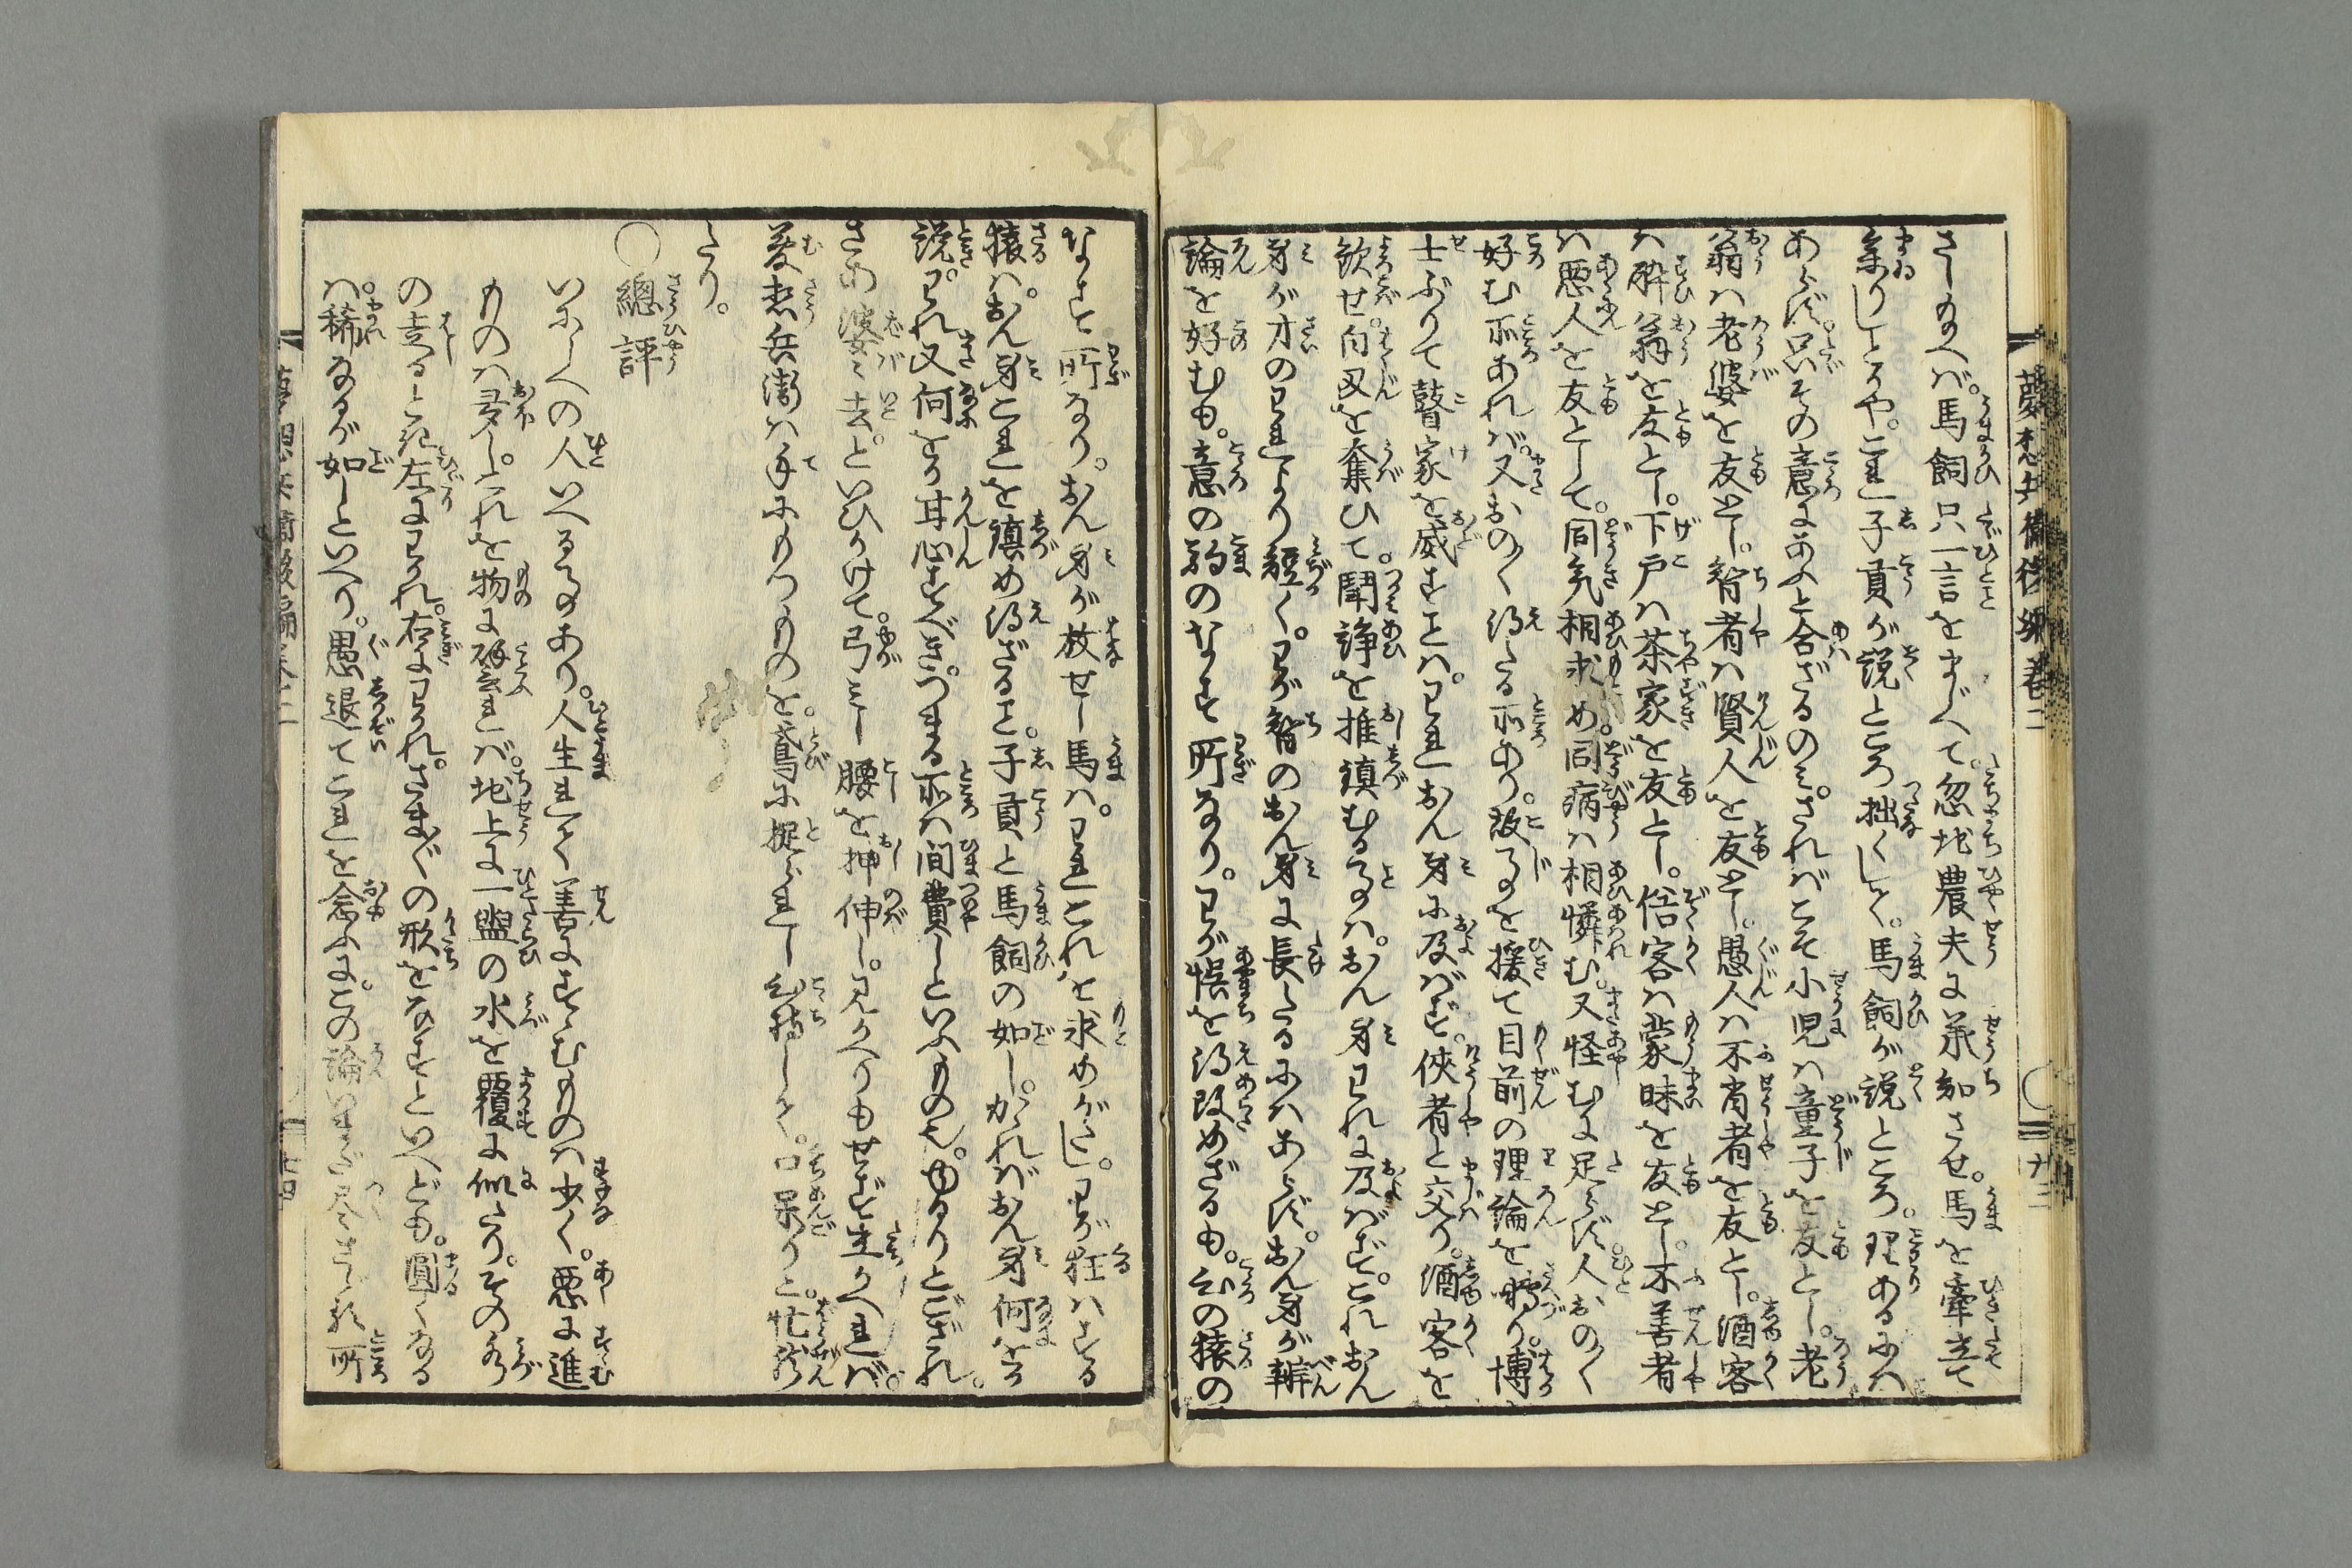 さし向へば。馬飼只一言をまじへて。忽地農夫に承知させ。馬を牽立て
参りしとかや。これ子貢が説ところ拙くして。馬飼が説ところ。理あるにハ
あらず。只その意にあふと合ざるのミ。さればこそ小児ハ童子を友とし。老
翁ハ老婆を友とし。智者ハ賢人を友とし。愚人ハ不肖者を友とし。酒客
ハ酔翁を友とし。下戸ハ茶家を友とし。俗客ハ蒙昧を友とし。不善者
ハ悪人を友として。同気相求め。同病ハ相憐む。又怪むに足らず。人おの〳〵
好む所あれバ。又おの〳〵得たる所あり。故事を援て目前の理論を囀り。博
士ぶりて瞽家を威すことハ。われおん身に及バず。侠者と交り。酒客を
歓せ。白刃を奪ひて。闘諍を推鎮むる事ハ。おん身われに及バず。これおん
身が才のわれより軽く。わが智のおん身に長たるにハあらず。おん身が辨
論を好むも。意の駒のなす所なり。わが惧を得改めざるも。心の猿の
なす所なり。おん身が放せし馬ハ。われこれを求めがたし。わが狂ハする
猿ハ。おん身これを鎮め得ざること。子貢と馬飼の如し。かゝれバおん身何をか
説。われ又何をか甘心すべき。つまる所ハ間費しといふものだ。ゆるりとござれ。
さあ婆々去。といひかけて。弓ミし腰を押伸し。見かへりもせず立かへれバ。
夢想兵衛ハ手にもつものを。鳶に捉られし心持して。口呆りと。忙然
たり。
〇總評
いにしへの人いへる事あり。人生れて善にすゝむものハ少く。悪に進
ものハ多し。これを物に譬れバ。地上に一盥の水を覆に似たり。その水
の走るとき左にわかれ。右にわかれ。さま〴〵の形をなすといへども。圓くなる
ハ。稀なるが如しといへり。愚退てこれを念ふに。この論いまだ尽さゞる所
夢想兵衛後編巻二
廿三